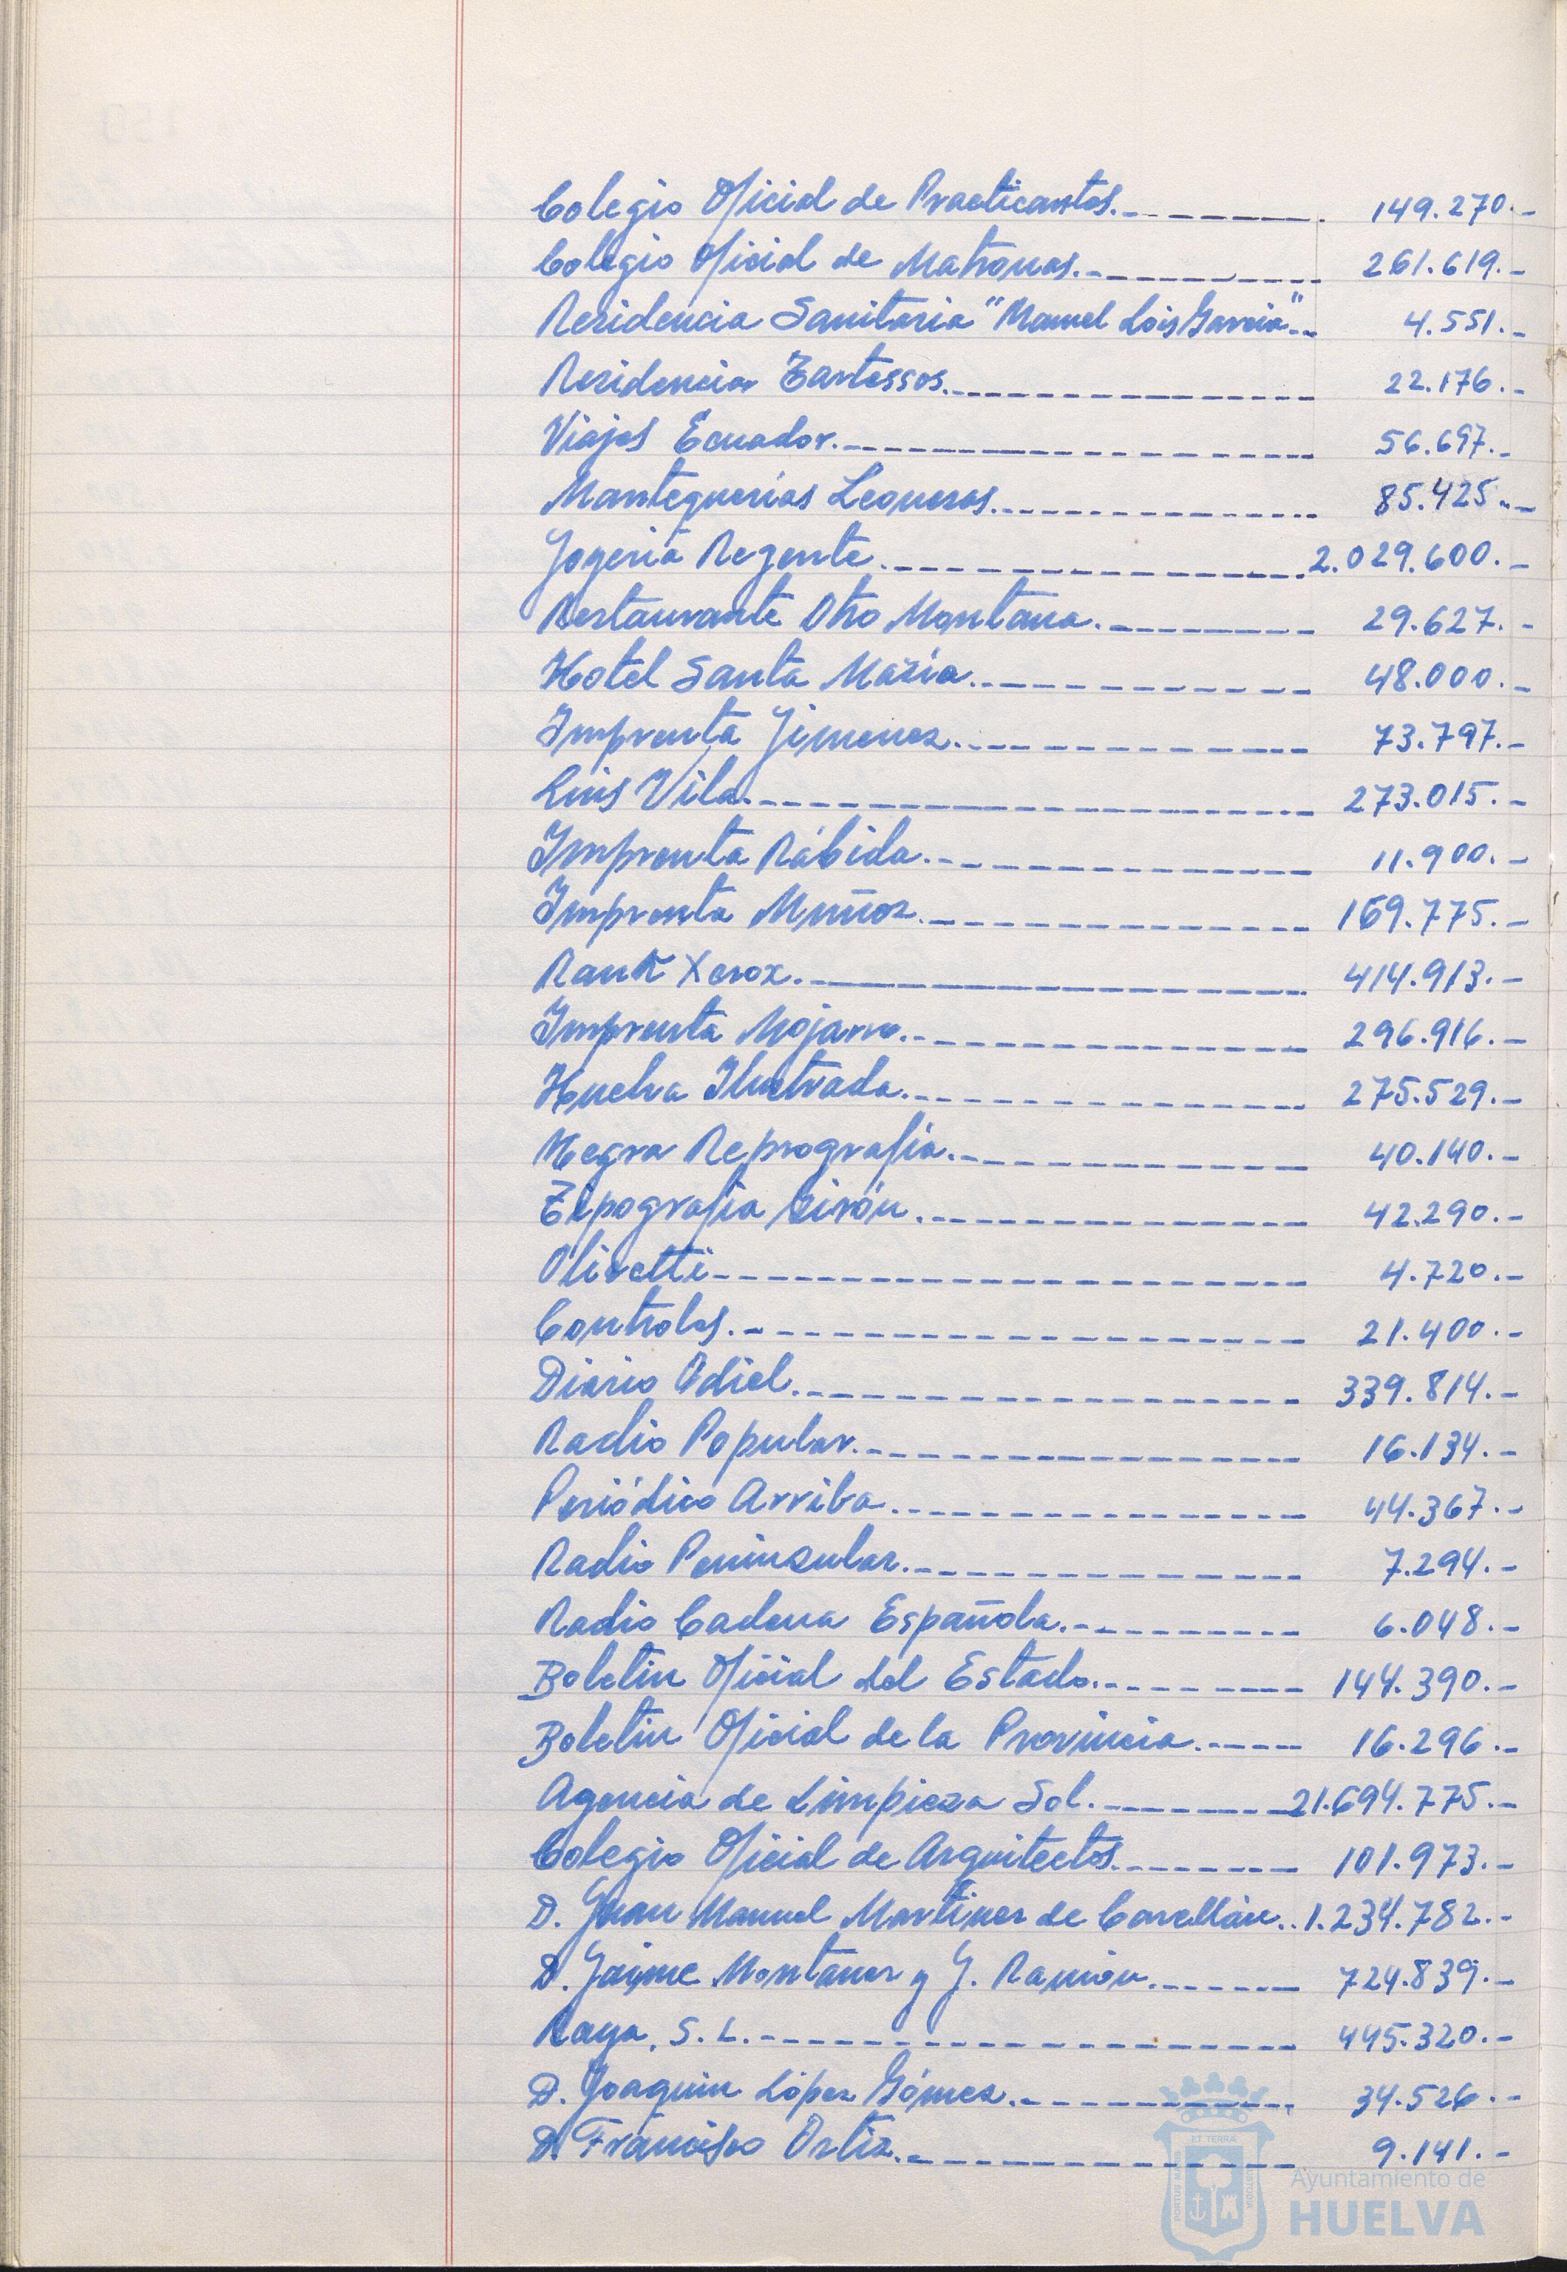 Colegio Oficial de Practicantes.- - - - - - . 149.270.-
Colegio Oficial de Matronas.- - - - - - - 261.619.-
Residencia Sanitaria "Manuel Lois García".- 4.551.-
Residencia Tartessos.- - - - - - - - - - 22.176.-
Viajes Ecuador.- - - - - - - - - - - - 56.697.-
Mantequerías Leonesas.- - - - - - - - - 85.425.-
Joyería Regente.- - - - - - - - - - - 2.029.600.-
Restaurante Otto Montana.- - - - - - 29.627.-
Hotel Santa María.- - - - - - - - - 48.000.-
Imprenta Jimenez.- - - - - - - - - 73.797.-
Luis Vila.- - - - - - - - - - - - - 273.015.-
Imprenta Rábida.- - - - - - - - - - 11.900.-
Imprenta Muñoz.- - - - - - - - - - 169.775.-
Rank Xerox.- - - - - - - - - - - - 414.913.-
Imprenta Mojarro.- - - - - - - - - 296.916.-
Huelva Ilustrada.- - - - - - - - - 275.529.-
Megra Reprografía.- - - - - - - - 40.140.-
Tipografía Girón.- - - - - - - - - 42.290.-
Olivetti- - - - - - - - - - - - - - 4.720.-
Controles.- - - - - - - - - - - - - 21.400.-
Diario Odiel.- - - - - - - - - - - 339.814.-
Radio Popular.- - - - - - - - - - 16.134.-
Periódico Arriba.- - - - - - - - - 44.367.-
Radio Peninsular.- - - - - - - - - 7.294.-
Radio Cadena Española.- - - - - - 6.048.-
Boletín Oficial del Estado.- - - - - 144.390.-
Boletin Oficial de la Provincia.- - - - 16.296.-
Agencia de Limpieza Sol.- - - - - 21.694.775.-
Colegio Oficial de Arquitectos.- - - - - 101.973.-
D. Juan Manuel Martinez de Carellán.. 1.234.782.-
D. Jayme Montaner y J. Ramión.- - - - 724.839.-
Raya, S. L.- - - - - - - - - - - - - 445.320.-
D. Joaquin López Gómez.- - - - - - - 34.526.-
D. Francisco Ortiz.- - - - - - - - - 9.141.-
ET TERRAE
PORTUS MARIS
CUSTODIA
Ayuntamiento de
HUELVA